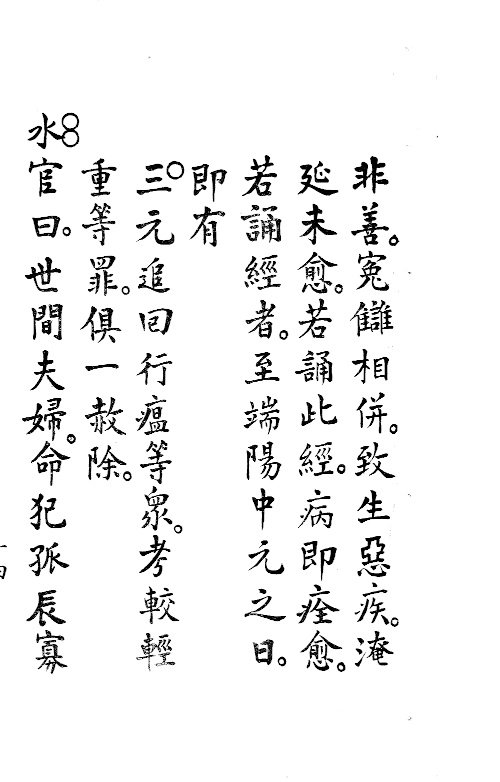 非善。冤讎相併。致生惡疾。淹
延未愈。若誦此經。病即痊愈。
若誦經者。至端陽中元之日。
即有
三元追回行瘟等衆。考較輕
重等罪。俱一赦除。
水官曰。世間夫婦。命犯孤辰寡